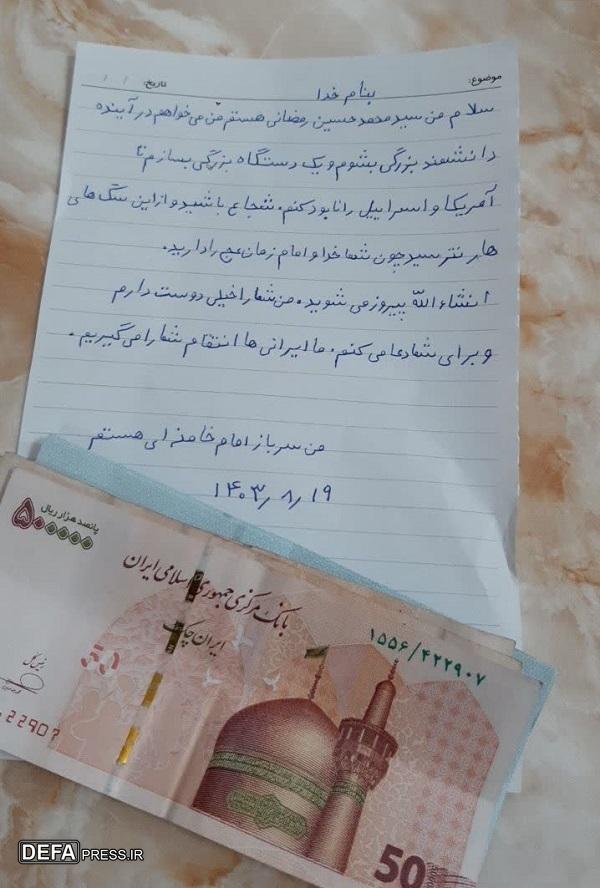 موضوع:
تاریخ: / /
بنام خدا
سلام من سیدمحمدحسین رمضانی هستم من می‌خواهم در آینده
دانشمند بزرگی بشوم و یک دستگاه بزرگی بسازم تا
آمریکا و اسراییل را نابود کنم. شجاع باشید و از این سگ های
هار نترسید چون شما خدا و امام زمان عج را دارید.
انشاءالله پیروز می شوید. من شما را خیلی دوست دارم
و برای شما دعا می کنم. ما ایرانی ها انتقام شما را می گیریم.
من سرباز امام خامنه ای هستم
۱۴۰۳/۸/۱۹
پانصد هزار ریال
۵۰۰۰۰۰
بانک مرکزی جمهوری اسلامی ایران
ایران چک
۱۵۵۶/۴۲۲۹۰۷
50
22907
50
DEFA PRESS.IR